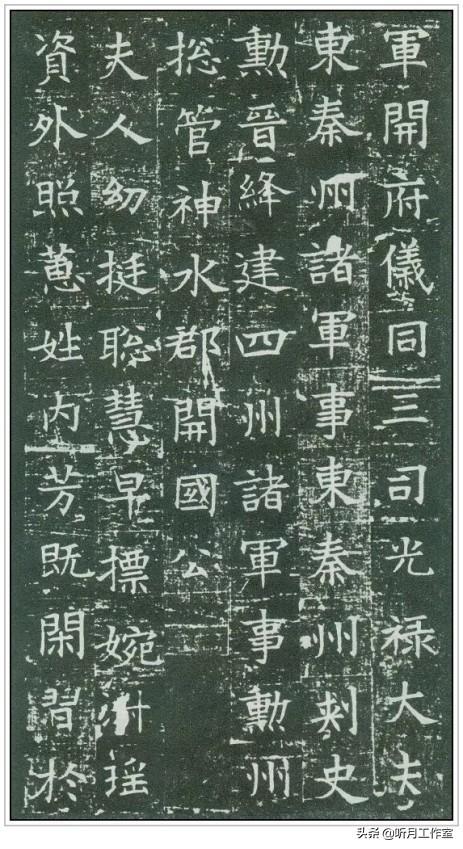 軍開府儀同三司光祿大夫
東秦州諸軍事東秦州刺史
勳晉絳建四州諸軍事勳州
摠管神水郡開國公
夫人幼挺聡慧早摽婉淑瑶
資外照蕙姓内芳既閑習於
头条 @听月工作室